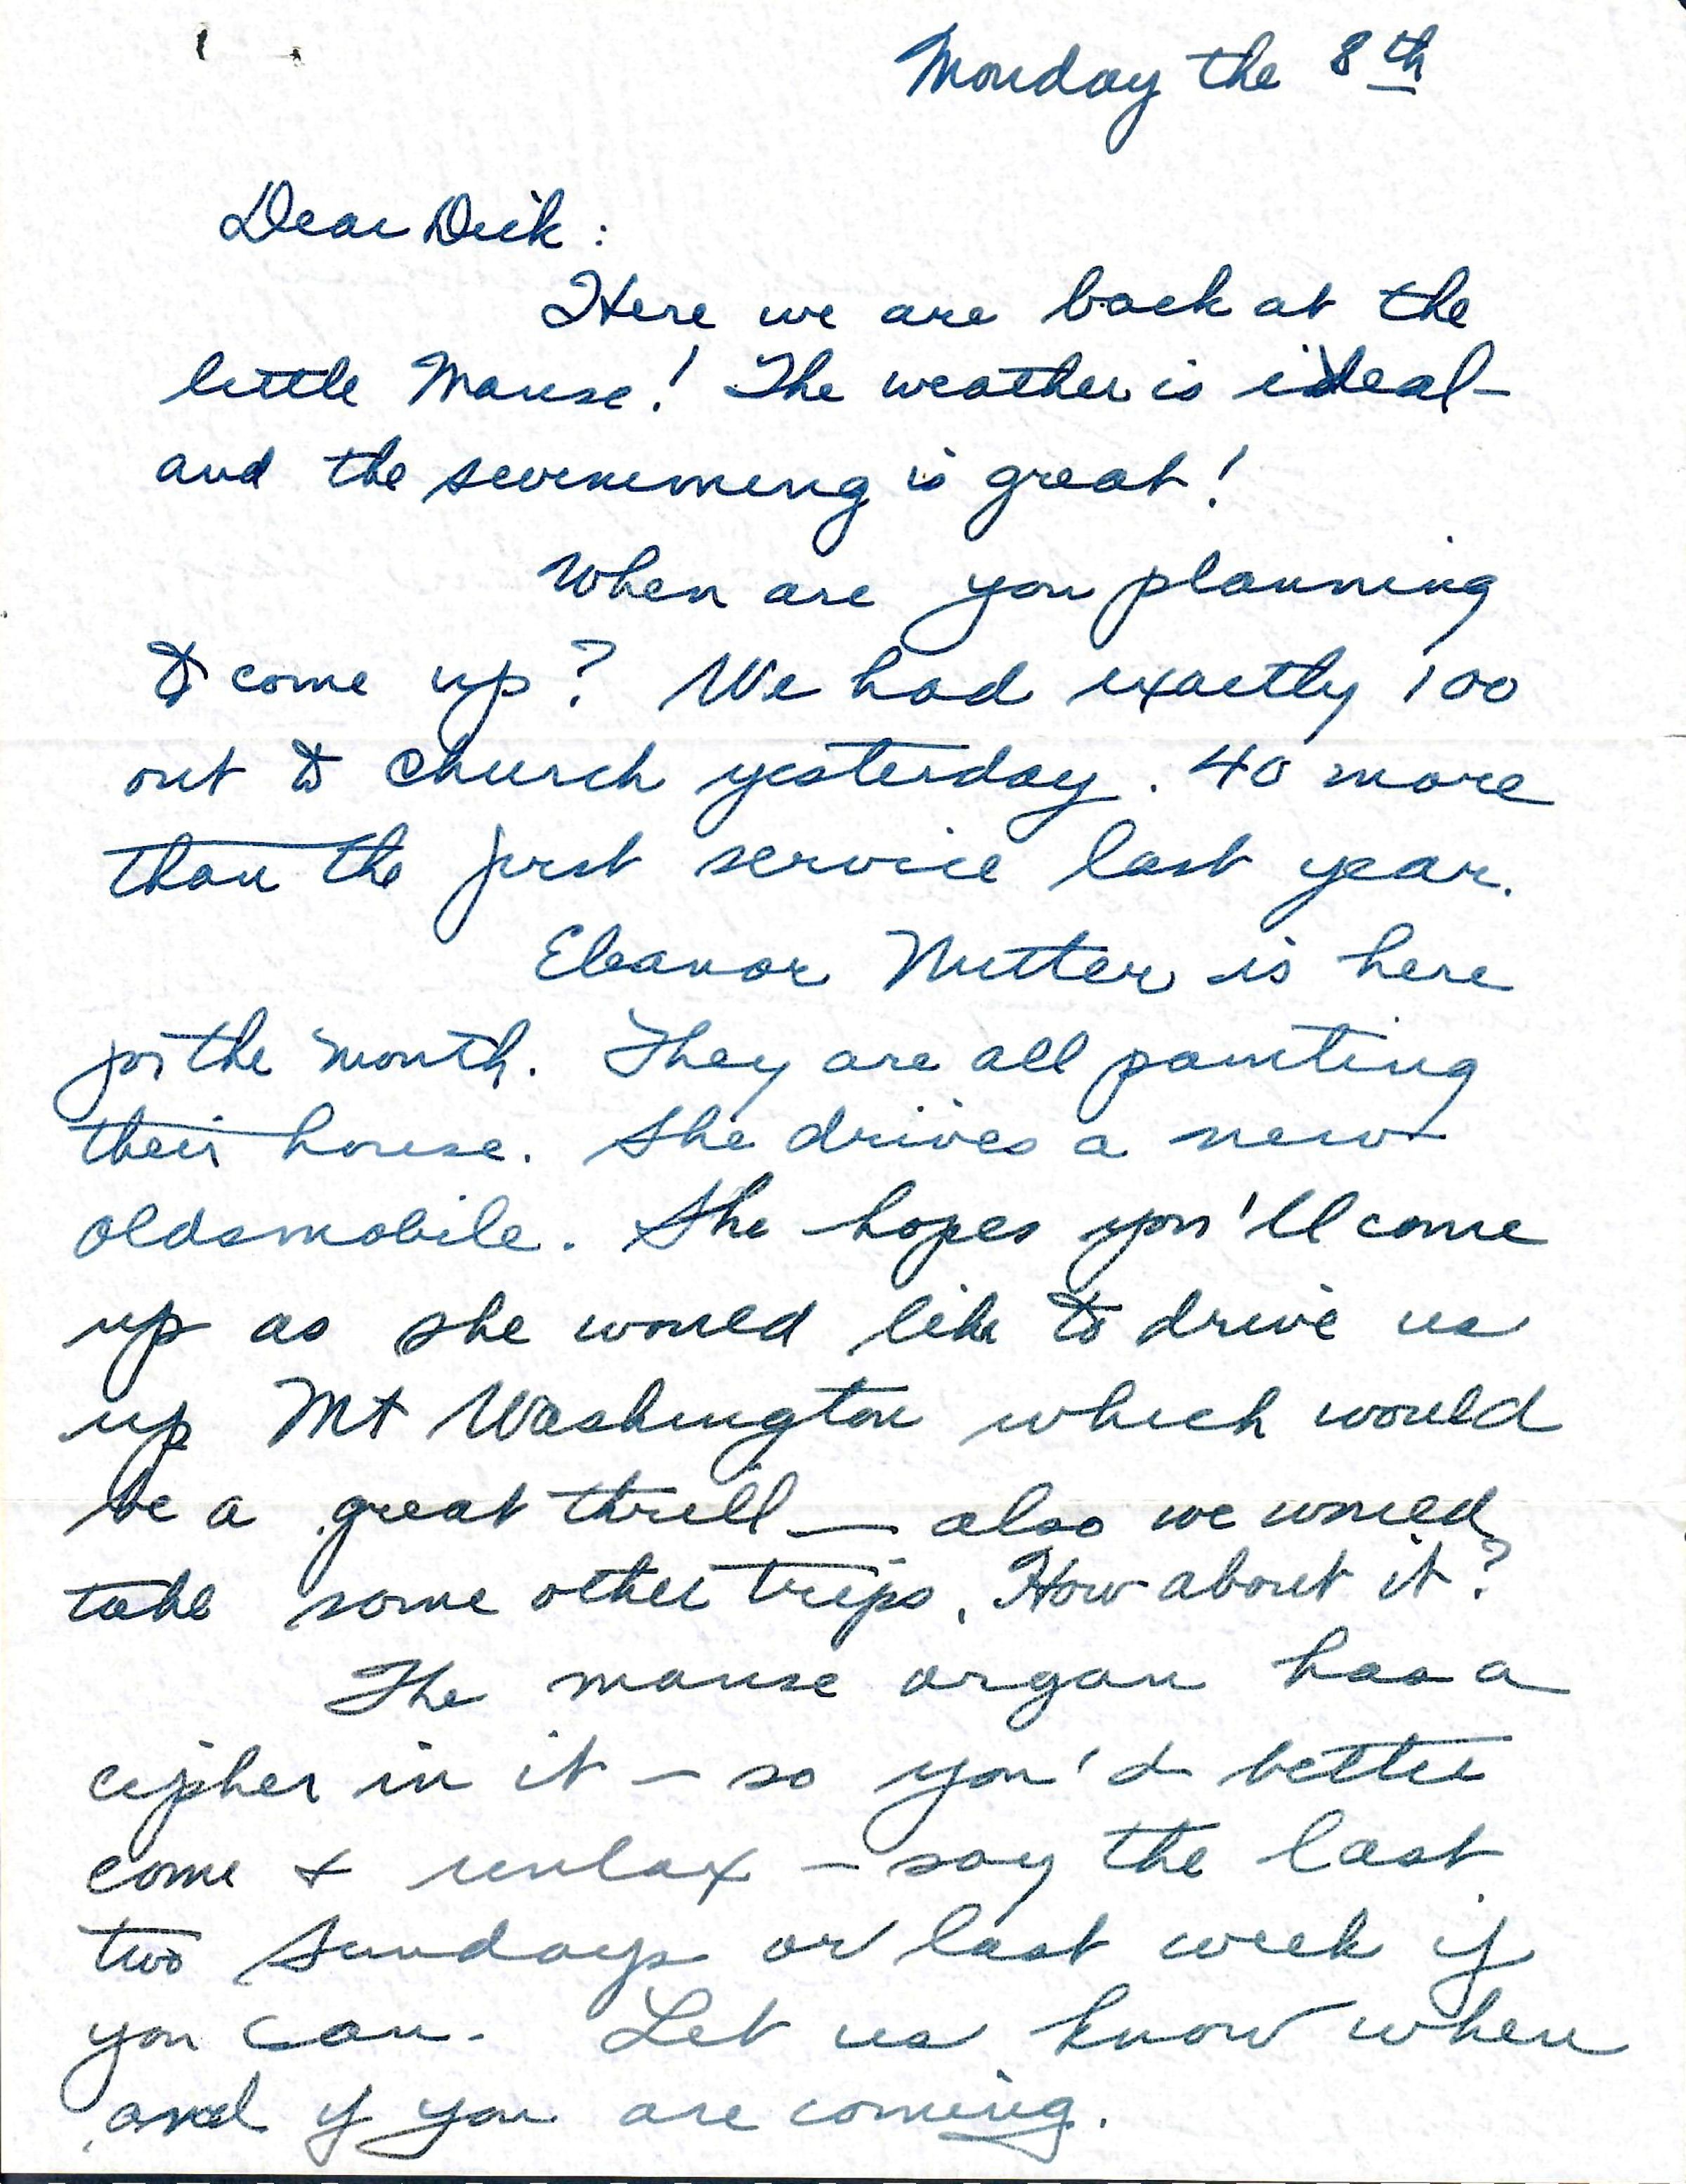 Monday the 8th
Dear Dick:
Here we are back at the
little Manse! The weather is ideal—
and the swimming is great!
When are you planning
to come up? We had exactly 100
out to church yesterday. 40 more
than the first service last year.
Eleanor Nutter is here
for the month. They are all painting
their house. She drives a new
oldsmobile. She hopes you'll come
up as she would like to drive us
up Mt Washington which would
be a great thrill — also we would
take some other trips. How about it?
The manse organ has a
cipher in it — so you'd better
come + relax — say the last
two Sundays or last week if
you can. Let us know when
and if you are coming.